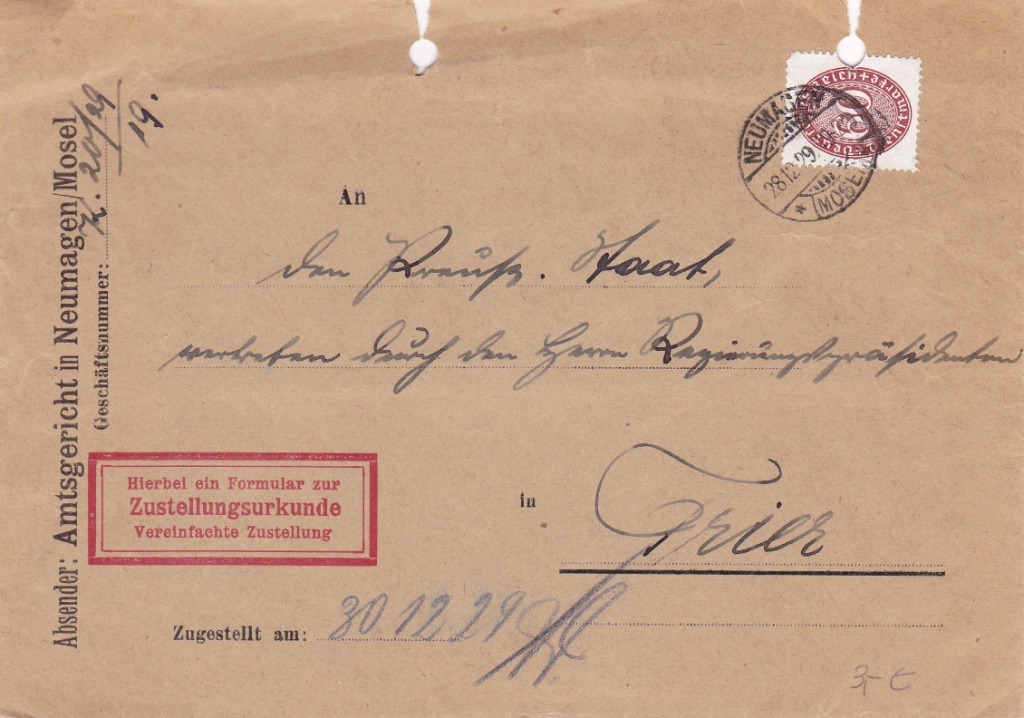 Absender: Amtsgericht in Neumagen/Mosel
Geschäftsnummer: K. 20/29
19.
NEUMAGEN
28.12.29
(MOSEL)
An
den Preuß. Staat,
vertreten durch den Herrn Regierungspräsidenten
in Trier
Hierbei ein Formular zur
Zustellungsurkunde
Vereinfachte Zustellung
Zugestellt am: 30.12.29
3,- €